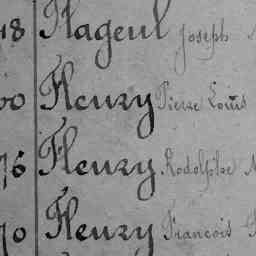 48 Flageul Joseph
00 Fleury Pierre Louis
76 Fleury Rodolphe
70 Fleury François